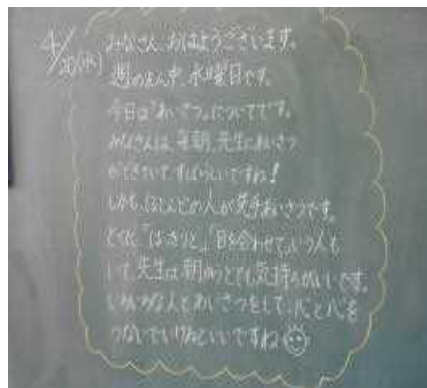 4/20(水)
みなさん、おはようございます。
週のまん中、水曜日です。
今日は「あいさつ」についてです。
みなさんは、毎朝、先生にあいさつ
ができていて、すばらしいですね!
しかも、ほとんどの人が先手あいさつです。
とくに「はっきりと」「目を合わせて」いう人も
いて、先生は朝からとても気持ちがいいです。
いろんな人とあいさつをして、心と心を
つないでいけるといいですね